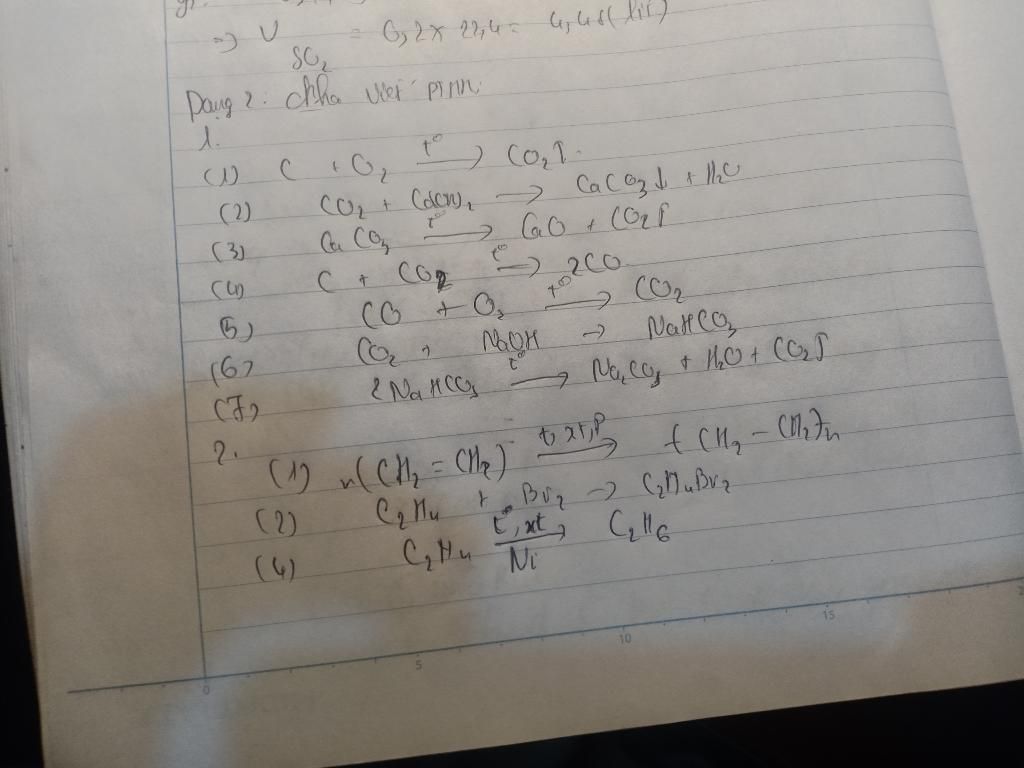 => V SO₂ = 0,2 x 22,4 = 4,48 (lít)
Dạng 2: viết PTHH:
1.
(1) C + O₂ —t°→ CO₂↑
(2) CO₂ + Ca(OH)₂ → CaCO₃↓ + H₂O
(3) CaCO₃ —t°→ CaO + CO₂↑
(4) C + CO₂ —t°→ 2CO
(5) CO + O₂ —t°→ CO₂
(6) CO₂ + NaOH → NaHCO₃
(7) 2NaHCO₃ —t°→ Na₂CO₃ + H₂O + CO₂↑
2.
(1) n(CH₂ = CH₂) —t, xt, P→ (CH₂ – CH₂)n
(2) C₂H₄ + Br₂ → C₂H₄Br₂
(4) C₂H₄ —t°, xt→ Ni C₂H₆
0 5 10 15